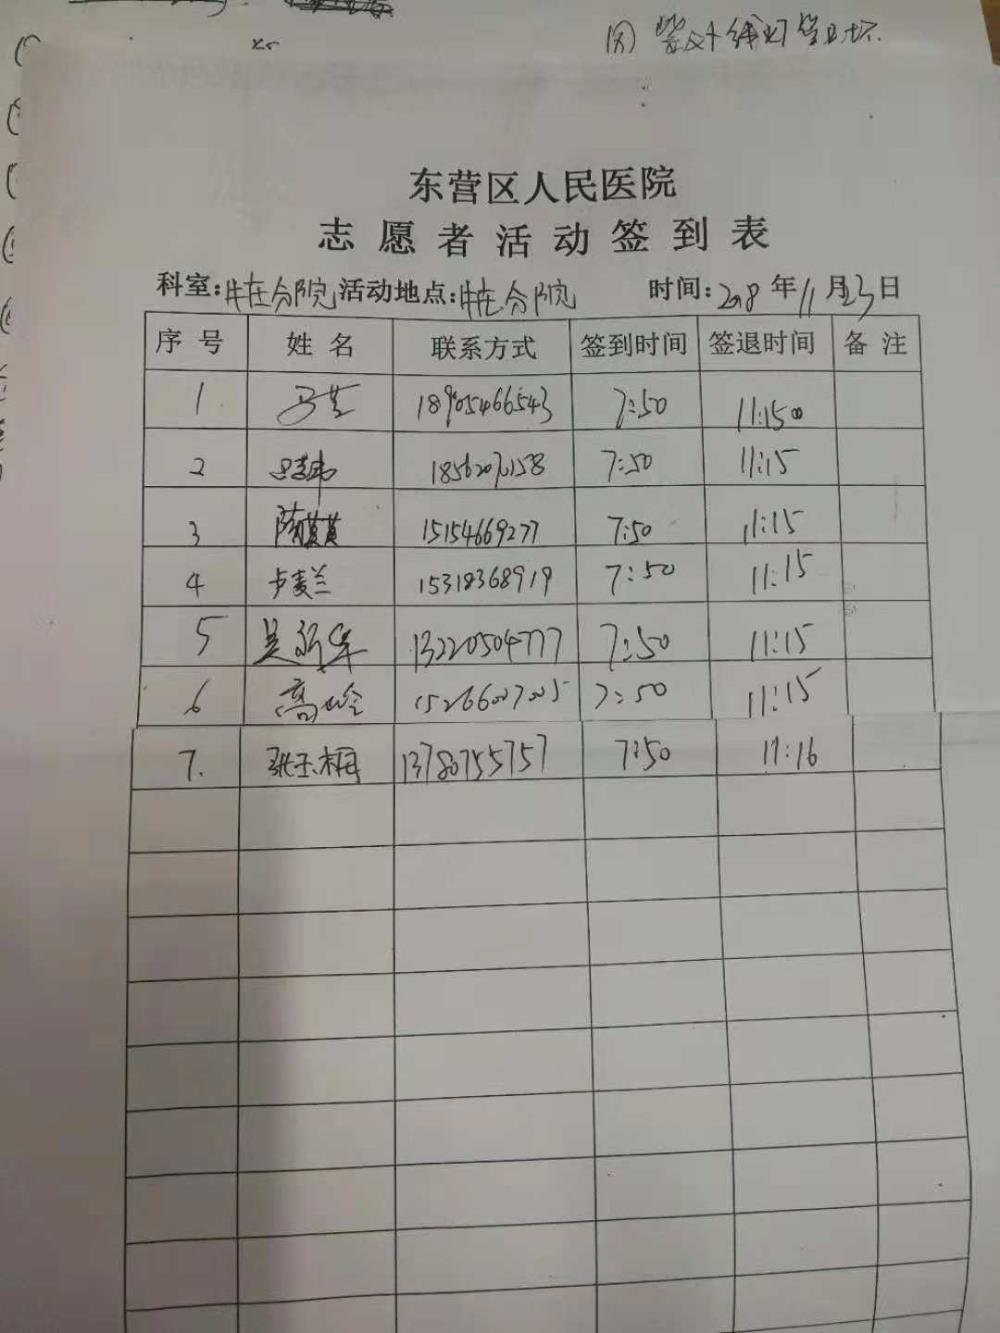 紫外线灯管已坏.
东营区人民医院
志愿者活动签到表
科室:牛庄分院 活动地点:牛庄分院 时间:2018年11月23日
序号 姓名 联系方式 签到时间 签退时间 备注
1 马芸 18905466543 7:50 11:15
2 7:50 11:15
3 15154669277 7:50 11:15
4 卢麦兰 15318368919 7:50 11:15
5 吴新华 13220504777 7:50 11:15
6 高岭 15266007005 7:50 11:15
7. 张玉梅 13780755757 7:50 11:16